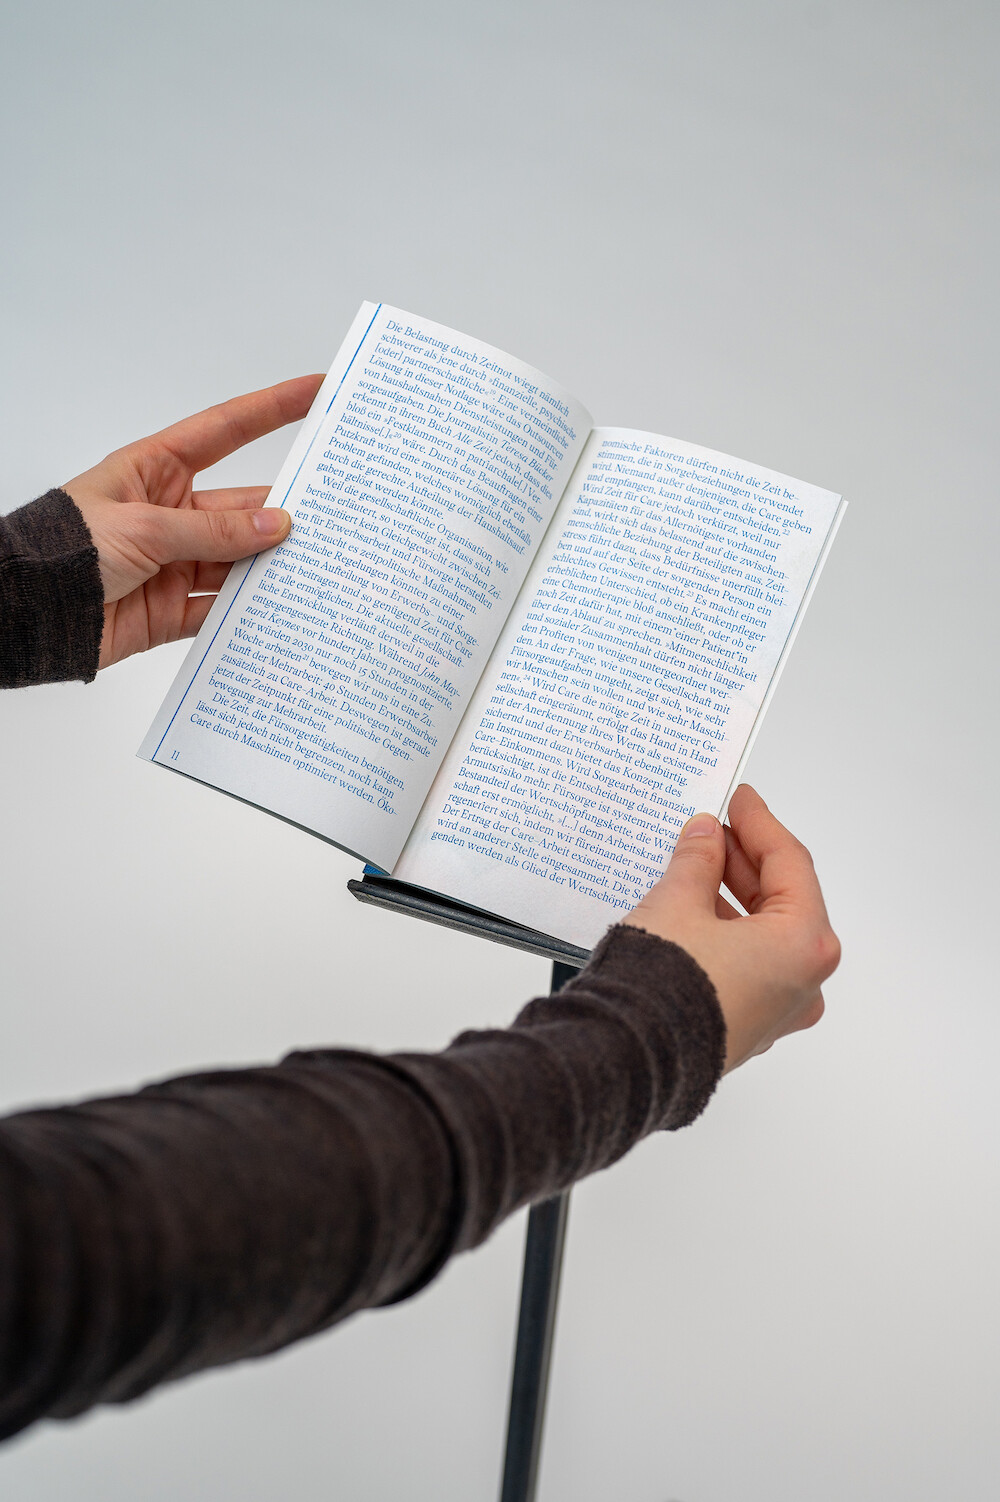 Die Belastung durch Zeitnot wiegt nämlich
schwerer als jene durch »finanzielle, psychische
[oder] partnerschaftliche«¹⁹. Eine vermeintliche
Lösung in dieser Notlage wäre das Outsourcen
von haushaltsnahen Dienstleistungen und Für-
sorgeaufgaben. Die Journalistin Teresa Bücker
erkennt in ihrem Buch Alle Zeit jedoch, dass dies
bloß ein »Festklammern an patriarchale[.] Ver-
hältnisse[.]«²⁰ wäre. Durch das Beauftragen einer
Putzkraft wird eine monetäre Lösung für ein
Problem gefunden, welches womöglich ebenfalls
durch die gerechte Aufteilung der Haushaltsauf-
gaben gelöst werden könnte.
Weil die geschlechtliche Organisation, wie
bereits erläutert, so verfestigt ist, dass sich
selbstinitiiert kein Gleichgewicht zwischen Zei-
ten für Erwerbsarbeit und Fürsorge herstellen
wird, braucht es zeitpolitische Maßnahmen.
Gesetzliche Regelungen könnten zu einer
gerechten Aufteilung von Erwerbs- und Sorge-
arbeit beitragen und so genügend Zeit für Care
für alle ermöglichen. Die aktuelle gesellschaft-
liche Entwicklung verläuft derweil in die
entgegengesetzte Richtung. Während John May-
nard Keynes vor hundert Jahren prognostizierte,
wir würden 2030 nur noch 15 Stunden in der
Woche arbeiten²¹ bewegen wir uns in eine Zu-
kunft der Mehrarbeit; 40 Stunden Erwerbsarbeit
zusätzlich zu Care-Arbeit. Deswegen ist gerade
jetzt der Zeitpunkt für eine politische Gegen-
bewegung zur Mehrarbeit.
Die Zeit, die Fürsorgetätigkeiten benötigen,
lässt sich jedoch nicht begrenzen, noch kann
Care durch Maschinen optimiert werden. Öko-
11
nomische Faktoren dürfen nicht die Zeit be-
stimmen, die in Sorgebeziehungen verwendet
wird. Niemand außer denjenigen, die Care geben
und empfangen, kann darüber entscheiden.²²
Wird Zeit für Care jedoch verkürzt, weil nur
Kapazitäten für das Allernötigste vorhanden
sind, wirkt sich das belastend auf die zwischen-
menschliche Beziehung der Beteiligten aus. Zeit-
stress führt dazu, dass Bedürfnisse unerfüllt blei-
ben und auf der Seite der sorgenden Person ein
schlechtes Gewissen entsteht.²³ Es macht einen
erheblichen Unterschied, ob ein Krankenpfleger
eine Chemotherapie bloß anschließt, oder ob er
noch Zeit dafür hat, mit einem*einer Patient*in
über den Ablauf zu sprechen. »Mitmenschlichkeit
und sozialer Zusammenhalt dürfen nicht länger
den Profiten von wenigen untergeordnet wer-
den. An der Frage, wie unsere Gesellschaft mit
Fürsorgeaufgaben umgeht, zeigt sich, wie sehr
wir Menschen sein wollen und wie sehr Maschi-
nen«.²⁴ Wird Care die nötige Zeit in unserer Ge-
sellschaft eingeräumt, erfolgt das Hand in Hand
mit der Anerkennung ihres Werts als existenz-
sichernd und der Erwerbsarbeit ebenbürtig.
Ein Instrument dazu bietet das Konzept des
Care-Einkommens. Wird Sorgearbeit finanziell
berücksichtigt, ist die Entscheidung dazu kein
Armutsrisiko mehr. Fürsorge ist systemrelevan
Bestandteil der Wertschöpfungskette, die Wir
schaft erst ermöglicht. »[...] denn Arbeitskraft
regeneriert sich, indem wir füreinander sorgen
Der Ertrag der Care-Arbeit existiert schon, d
wird an anderer Stelle eingesammelt. Die So
genden werden als Glied der Wertschöpfun